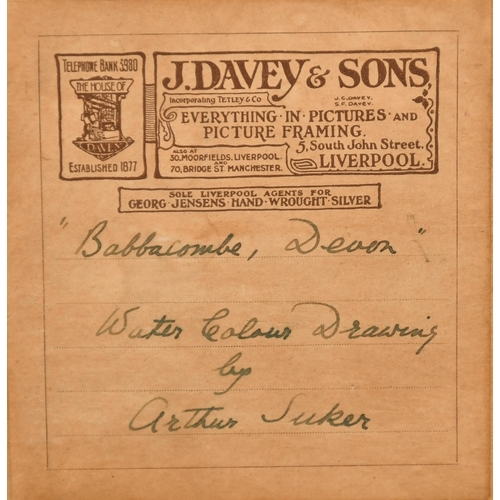 TELEPHONE BANK 5980
THE HOUSE OF
DAVEY
ESTABLISHED 1877
J. DAVEY & SONS
Incorporating TETLEY & Co
J. C. DAVEY.
S. F. DAVEY.
EVERYTHING · IN · PICTURES · AND
PICTURE FRAMING.
ALSO AT
30, MOORFIELDS, LIVERPOOL.
AND
70, BRIDGE ST. MANCHESTER.
5, South John Street.
LIVERPOOL.
SOLE LIVERPOOL AGENTS FOR
GEORG · JENSENS · HAND · WROUGHT · SILVER
"Babbacombe, Devon"
Water Colour Drawing
by
Arthur Suker